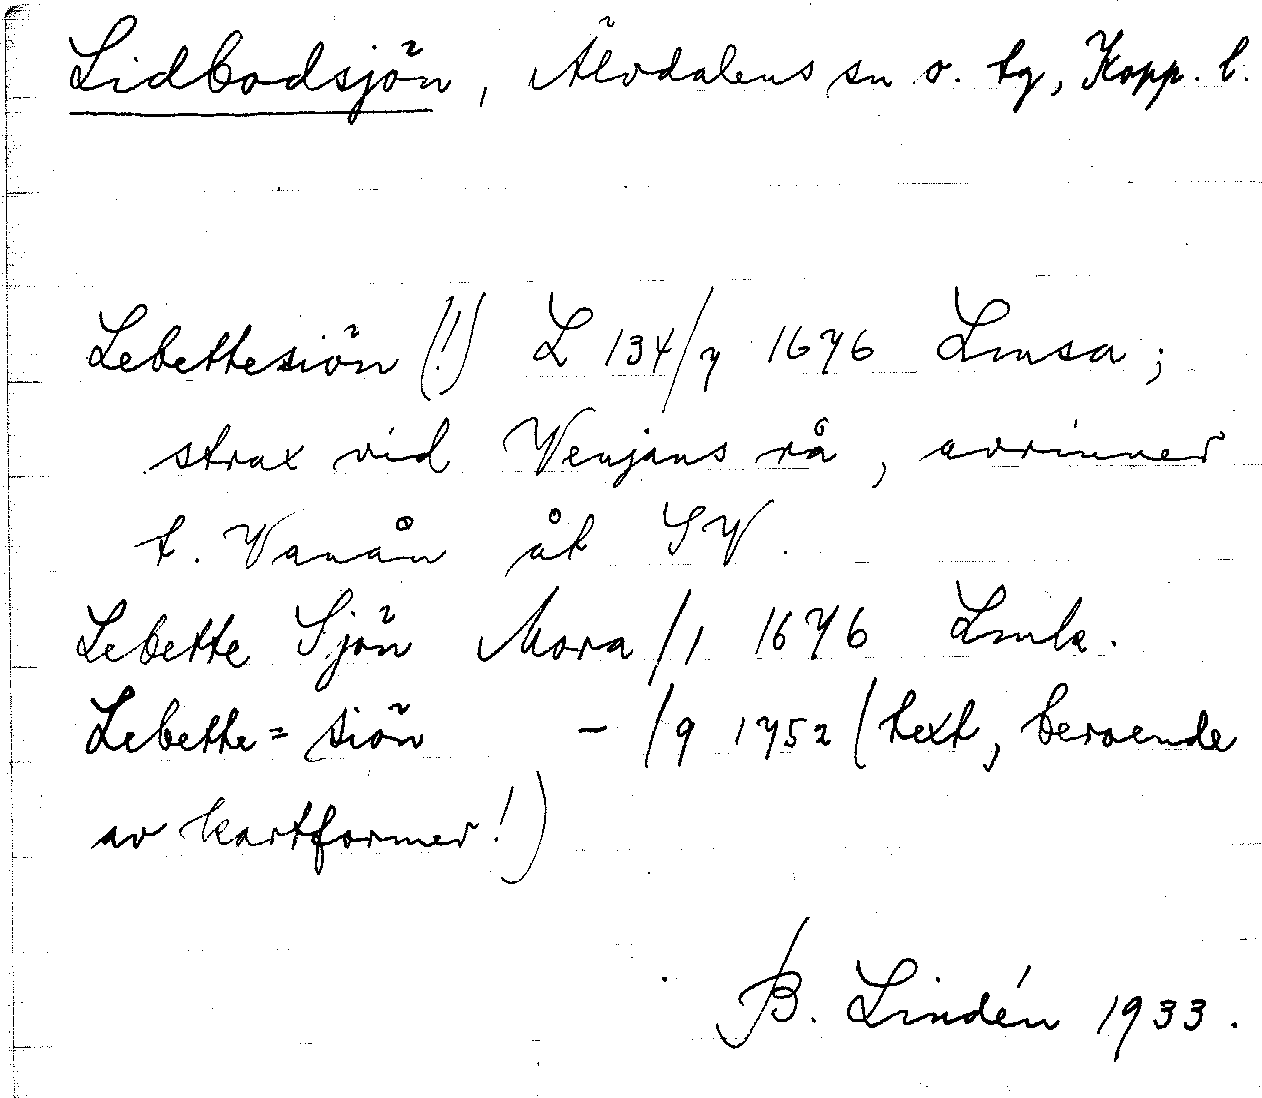 Lidbodsjön, Älvdalens sn o. tg, Kopp. l.
Lebettesiön (!) L 134/7 1676 Lmsa;
strax vid Venjans rå, avrinner
t. Vanån åt SV.
Lebette Sjön Mora /1 1676 Lmla.
Lebette= siön – /9 1752 (text, beroende
av kartformer!)
B. Lindén 1933.